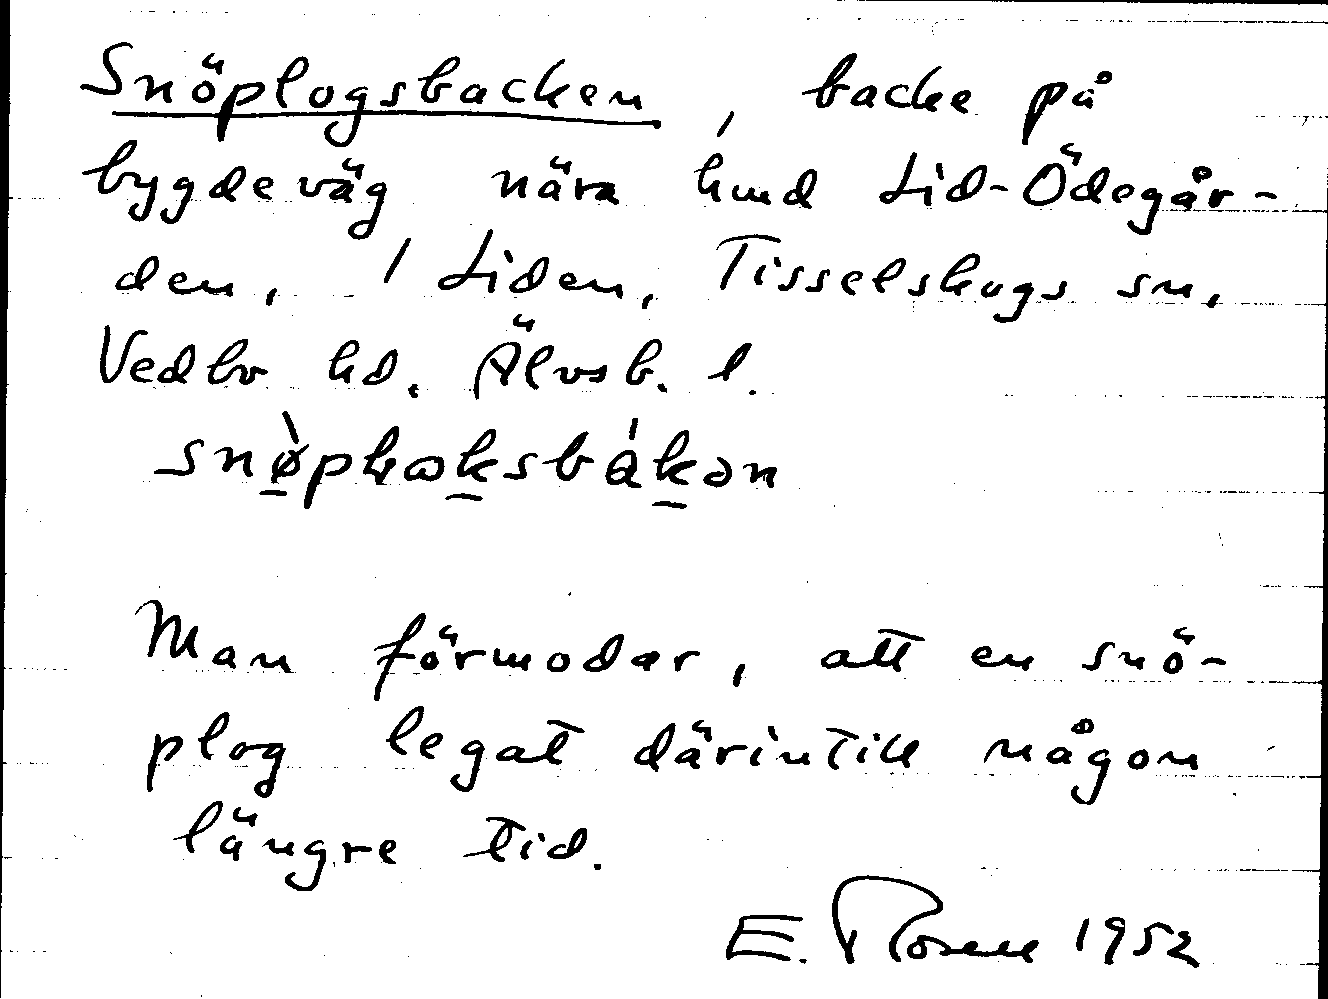 Snöplogsbacken, backe på
bygdeväg nära hmd Lid-Ödegår-
den, 1 Liden, Tisselskogs sn,
Vedbo hd. Älvsb. l.
Man förmodar, att en snö-
plog legat därintill någon
längre tid.
E. Rosell 1952